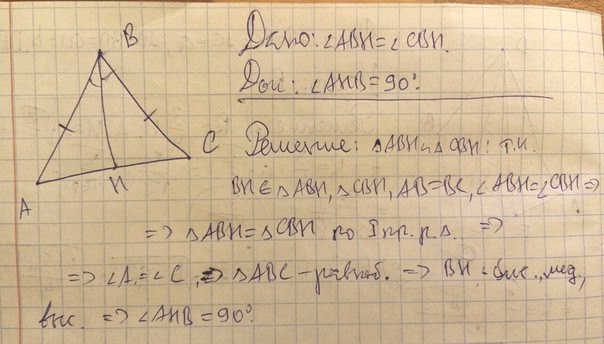 B
A
H
C
Дано: ∠ABH = ∠CBH.
Док: ∠AHB = 90°.
Решение: △ABH и △CBH: т.к.
BH ∈ △ABH, △CBH, AB = BC, ∠ABH = ∠CBH ⇒
⇒ △ABH = △CBH по I пр. р. △. ⇒
⇒ ∠A = ∠C, ⇒ △ABC - равноб. ⇒ BH - бис., мед.,
выс. ⇒ ∠AHB = 90°.